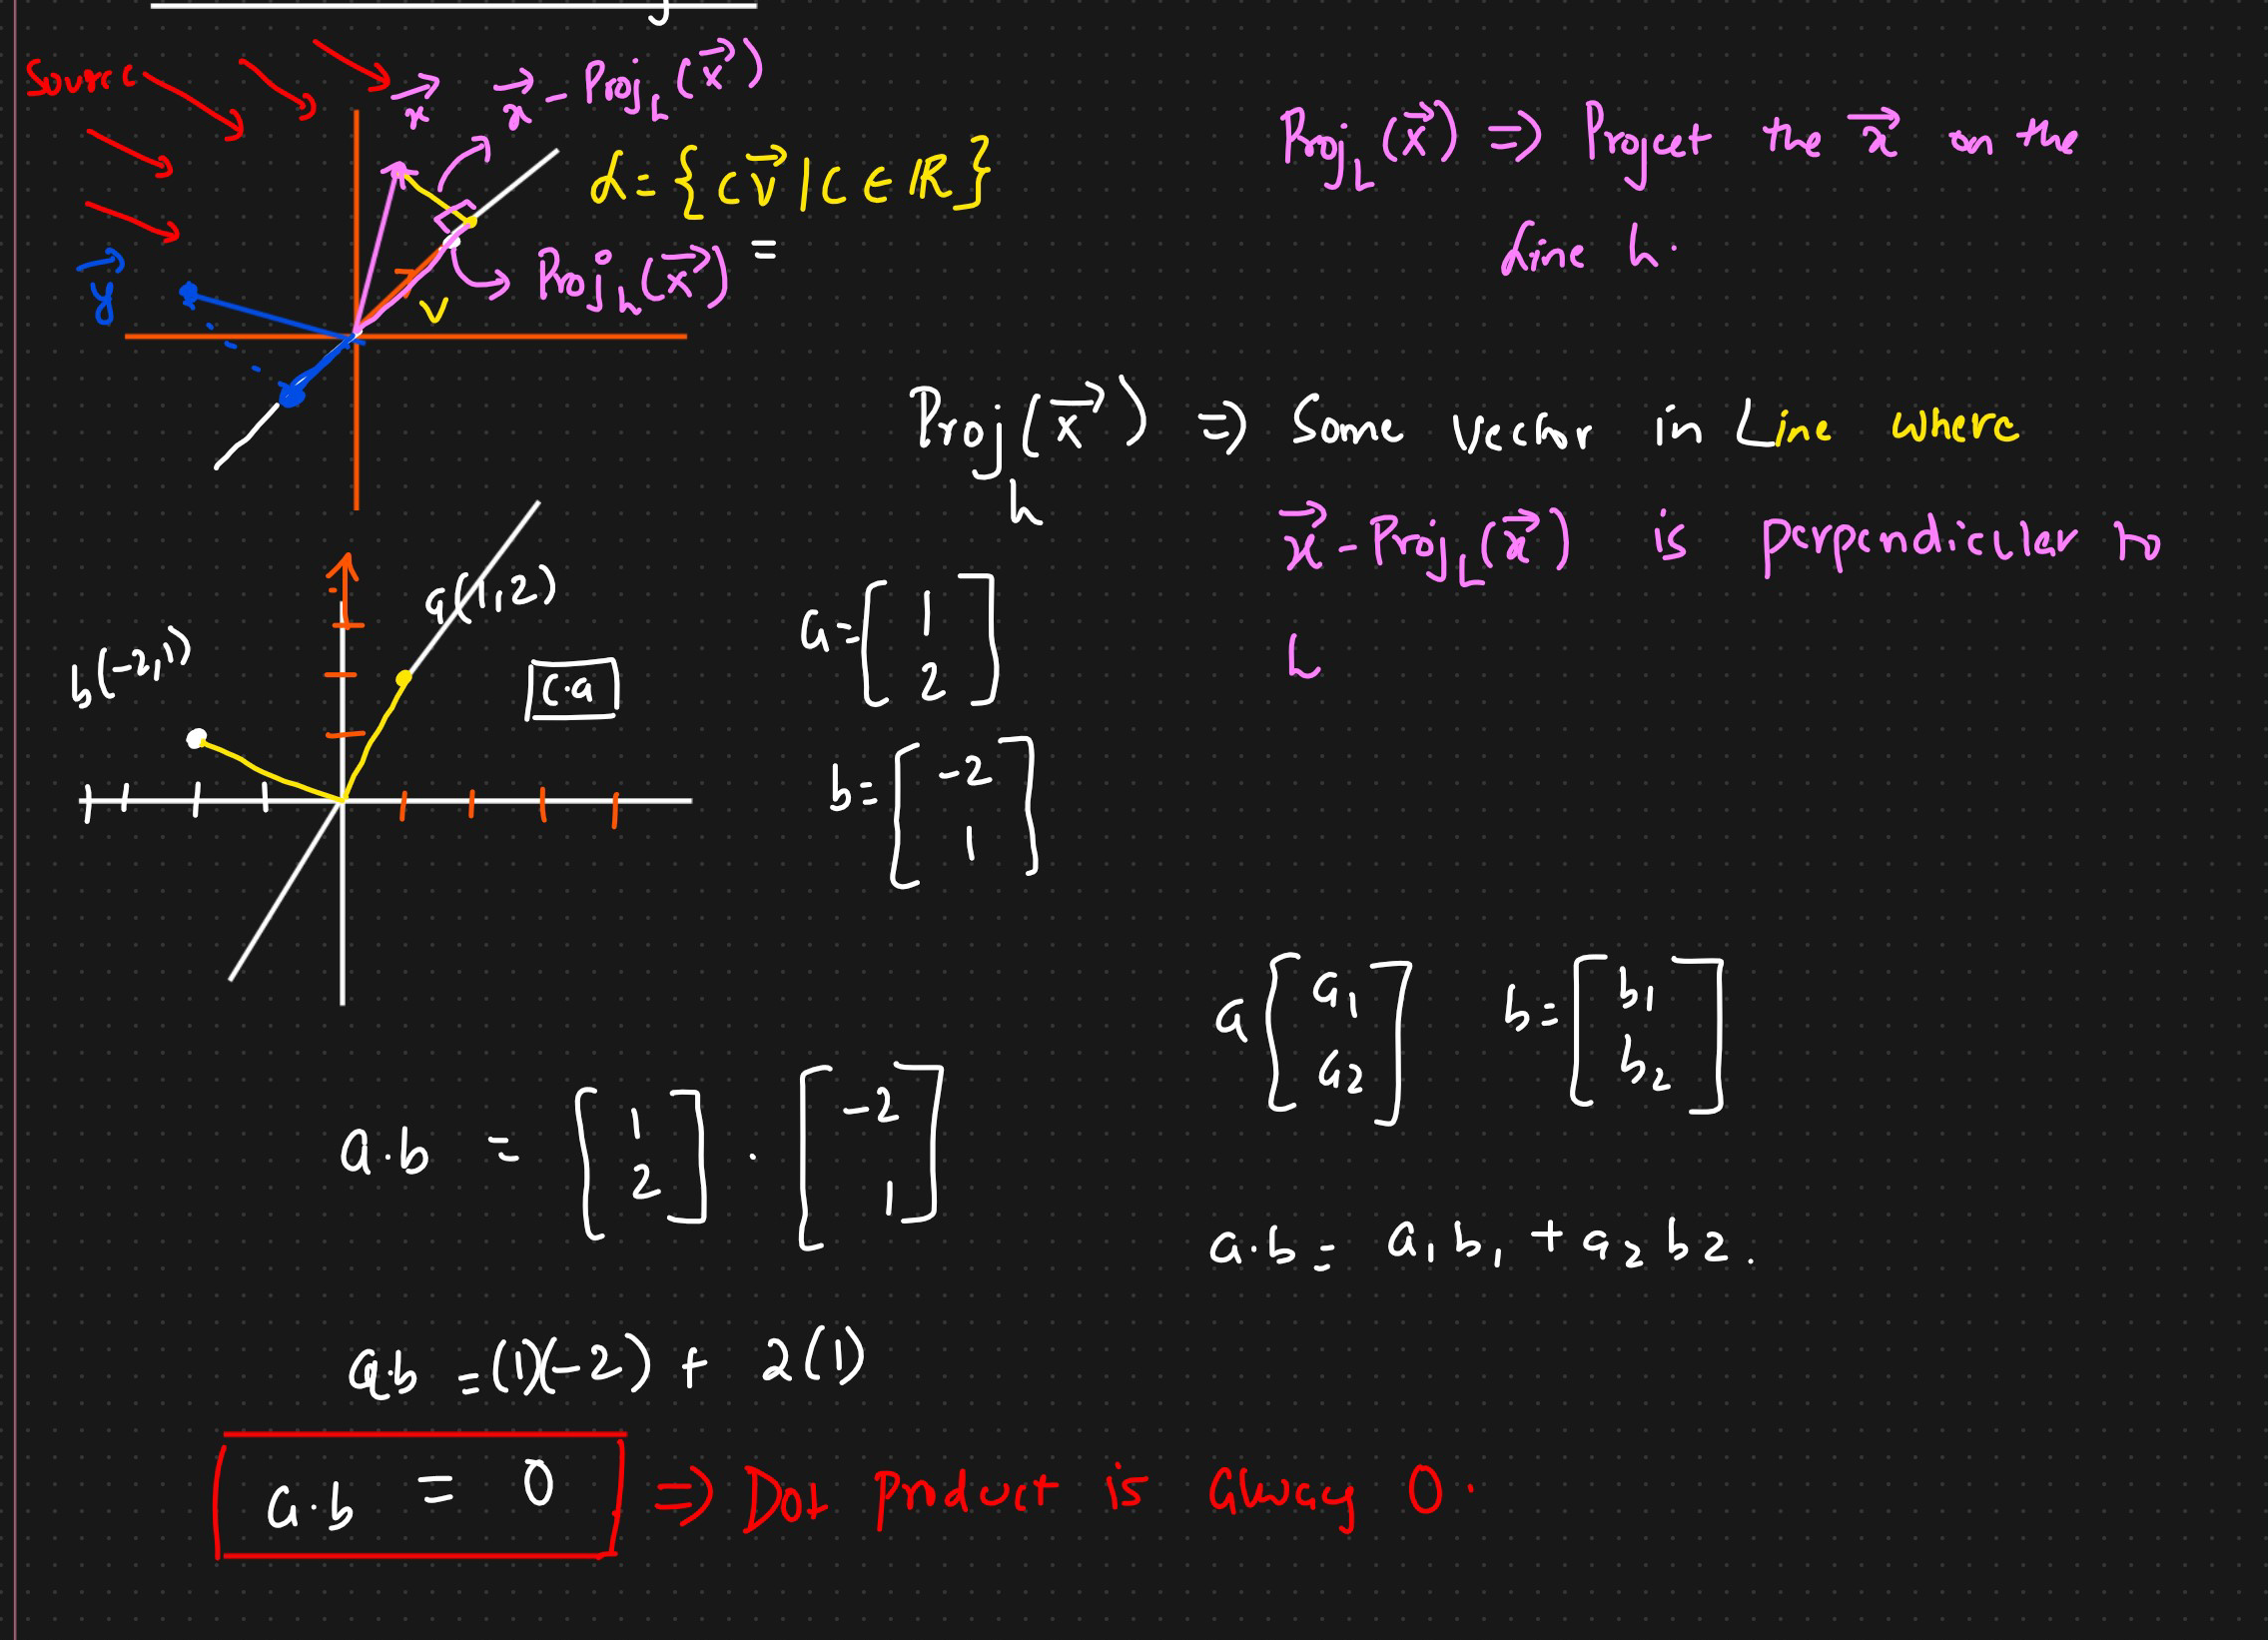 Source
x⃗
x⃗ - Proj_L (x⃗)
L = { c v⃗ | c ∈ ℝ }
Proj_L (x⃗) =
v
y⃗
Proj_L (x⃗) => Projcet the x⃗ on the
Line L.
Proj_L (x⃗) => Some Vector in Line where
x⃗ - Proj_L (x⃗) is perpendicular to
L
a(1,2)
b(-2,1)
c·a
a = [1 2]
b = [-2 1]
a [a₁ a₂] b = [b₁ b₂]
a·b = [1 2] · [-2 1]
a·b = a₁b₁ + a₂b2.
a·b = (1)(-2) + 2(1)
a·b = 0 => Dot product is alway 0.